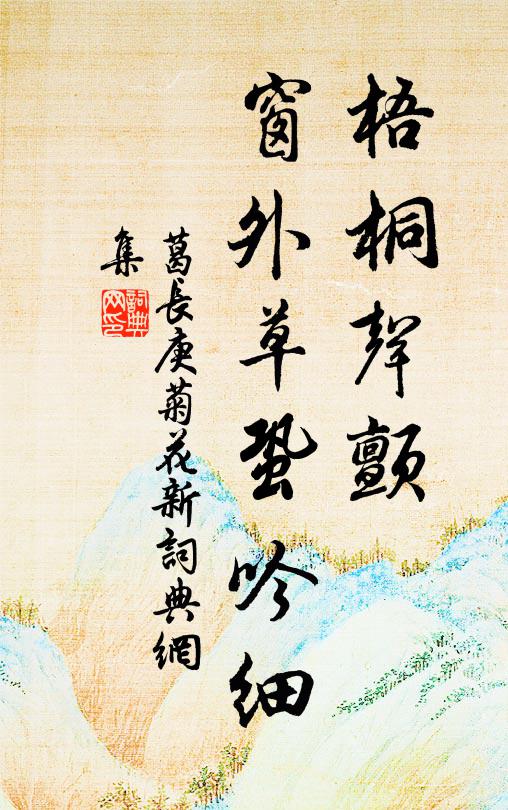 梧桐聲顫
窗外草蛩吟細
葛長庚菊花新詞典網
集
詞典
网印